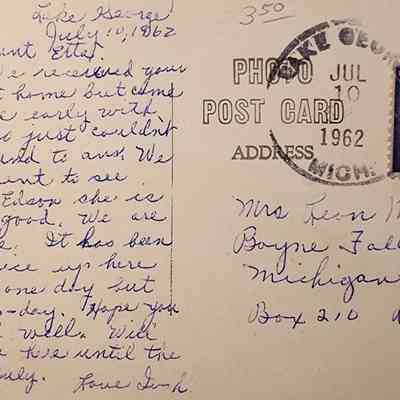 Lake George
July 10, 1962
unt Etta,
e received your
t home but came
e early with
o just couldn't
und to ans. We
ent to see
Edson she is
good. We are
e. It has been
ice up here
one day but
o-day. Hope you
well. Will
e here until the
uly.
Love
3.50
PHOTO
POST CARD
ADDRESS
LAKE GEORGE
JUL
10
1962
MICH.
Mrs Leon M
Boyne Fall
Michigan
Box 210